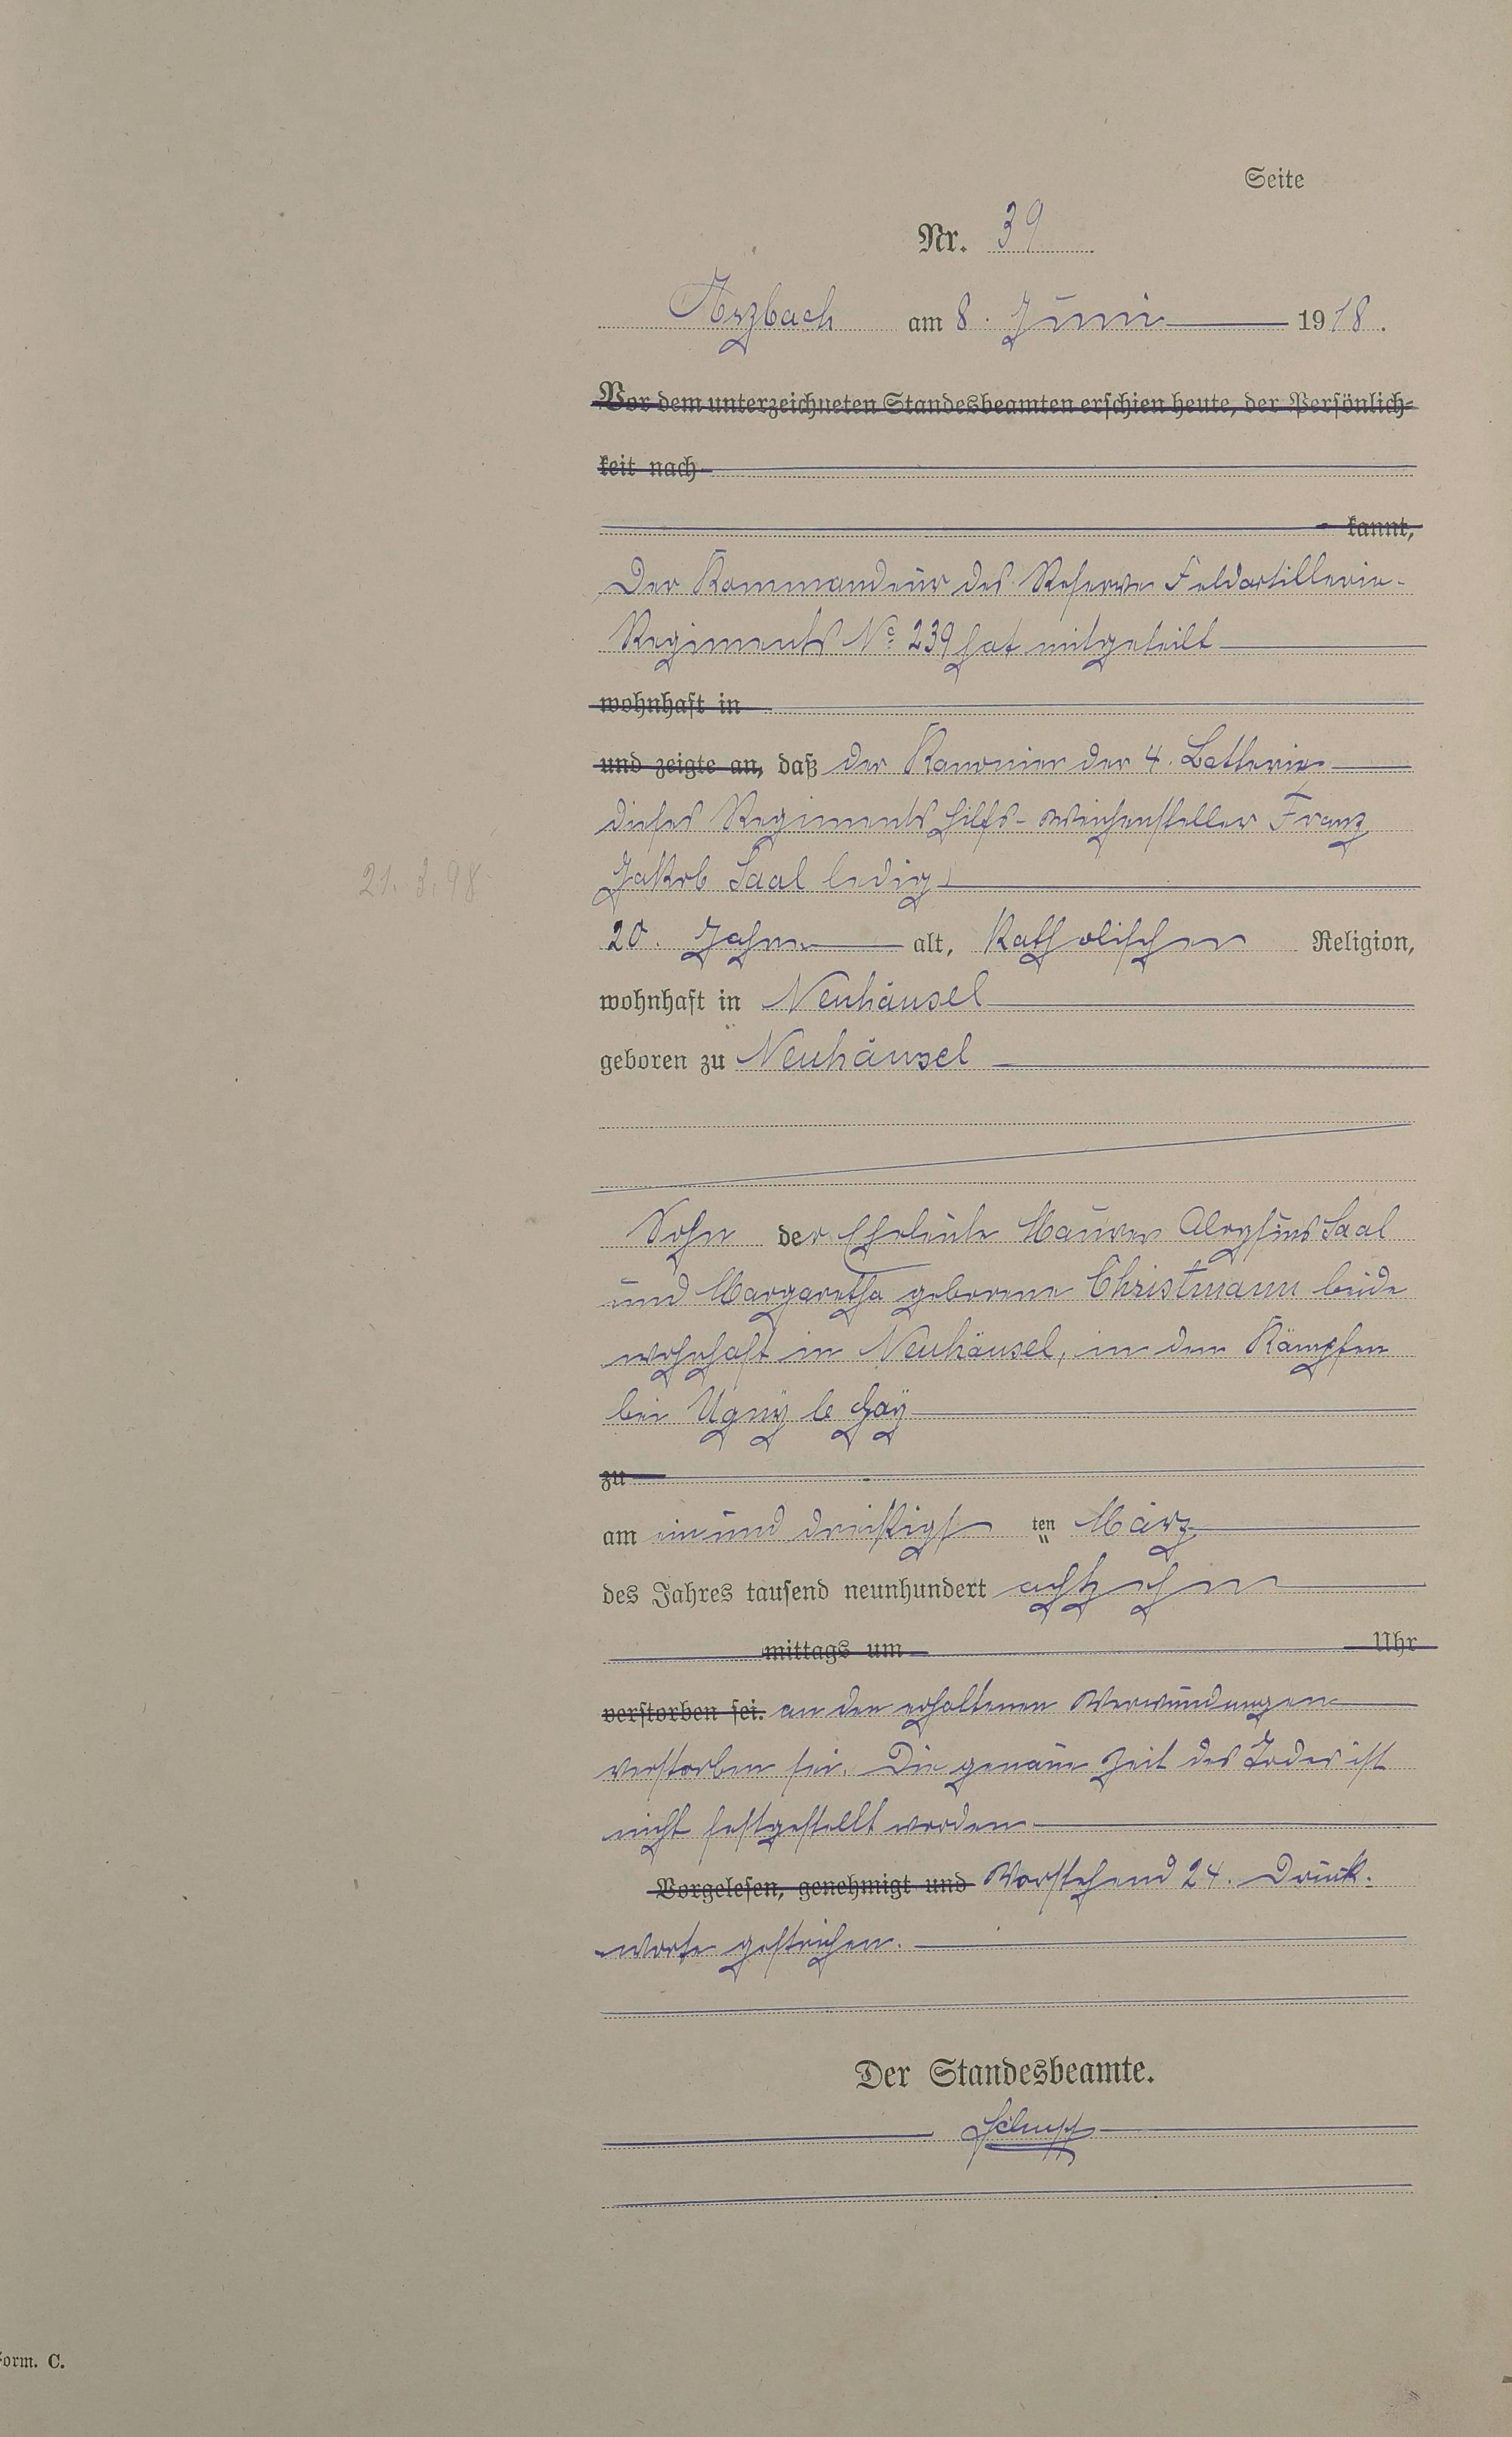 Seite
Nr. 39
Arzbach am 8. Juni 1918.
Vor dem unterzeichneten Standesbeamten erschien heute, der Persönlich-
keit nach
kannt,
Der Kommandeur des Reserve Feldartillerie-
Regiments No. 239 hat mitgeteilt
wohnhaft in
und zeigte an, daß der Kanonier der 4. Batterie
dieses Regiments Hilfs-Weichensteller Franz
Jakob Saal ledig
21. 3. 98
20. Jahre alt, Katholischer Religion,
wohnhaft in Neuhäusel
geboren zu Neuhäusel
Sohn der Eheleute Maurer Aloysius Saal
und Margaretha geborene Christmann beide
wohnhaft in Neuhäusel, in den Kämpfen
bei Ugny le Gay
zu
am einunddreißigsten März
des Jahres tausend neunhundert achtzehn
mittags um Uhr
verstorben sei. an den erhaltenen Verwundungen
verstorben sei. Die genaue Zeit des Todes ist
nicht festgestellt worden
Vorgelesen, genehmigt und Vorstehend 24. Druck-
worte gestrichen.
Der Standesbeamte.
Form. C.